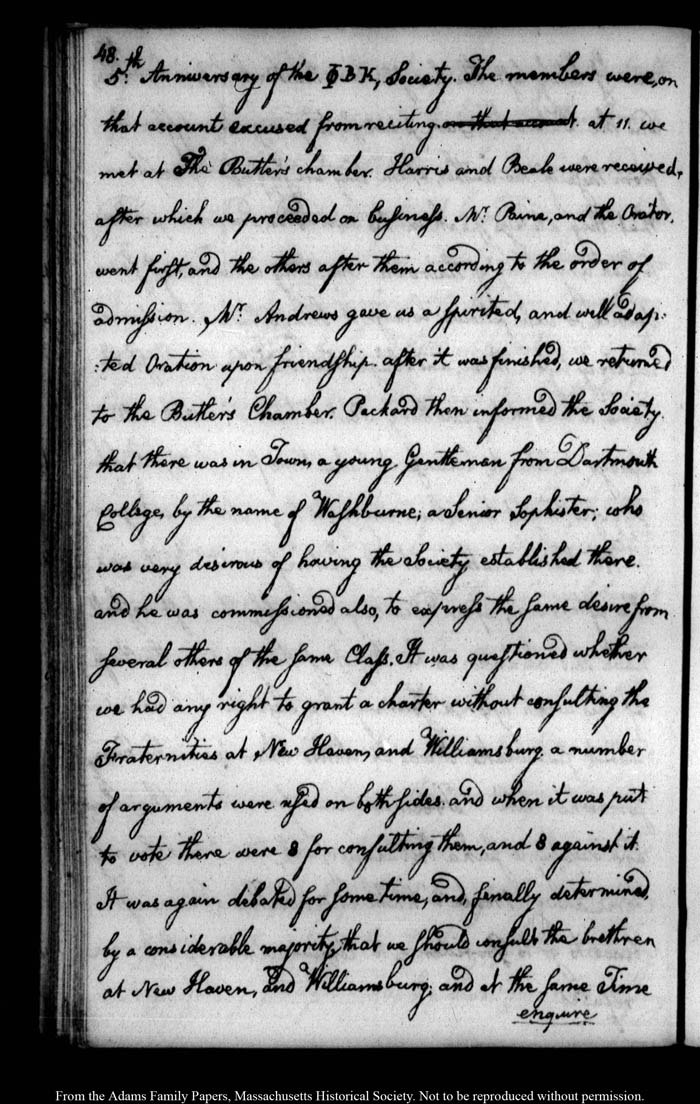 48.
5.th Anniversary of the ΦBK, Society. The members were, on
that account excused from reciting on that account. at 11. we
met at The Butler's chamber. Harris and Beale were received,
after which we proceeded on business. Mr. Paine, and the Orator,
went first, and the others after them according to the order of
admission. Mr. Andrews gave us a spirited, and well adap:
:ted Oration upon friendship. after it was finished, we returned
to the Butler's Chamber. Packard then informed the Society
that there was in Town, a young Gentleman from Dartmouth
College, by the name of Washburne; a Senior Sophister; who
was very desirous of having the Society established there.
and he was commissioned also, to express the same desire from
several others of the same Class. It was questioned whether
we had any right to grant a charter without consulting the
Fraternities at New Haven, and Williamsburg. a number
of arguments were used on both sides. and when it was put
to vote there were 8 for consulting them, and 8 against it.
It was again debated for some time, and, finally determined,
by a considerable majority, that we should consult the brethren
at New Haven, and Williamsburg; and at the same Time
enquire
From the Adams Family Papers, Massachusetts Historical Society. Not to be reproduced without permission.